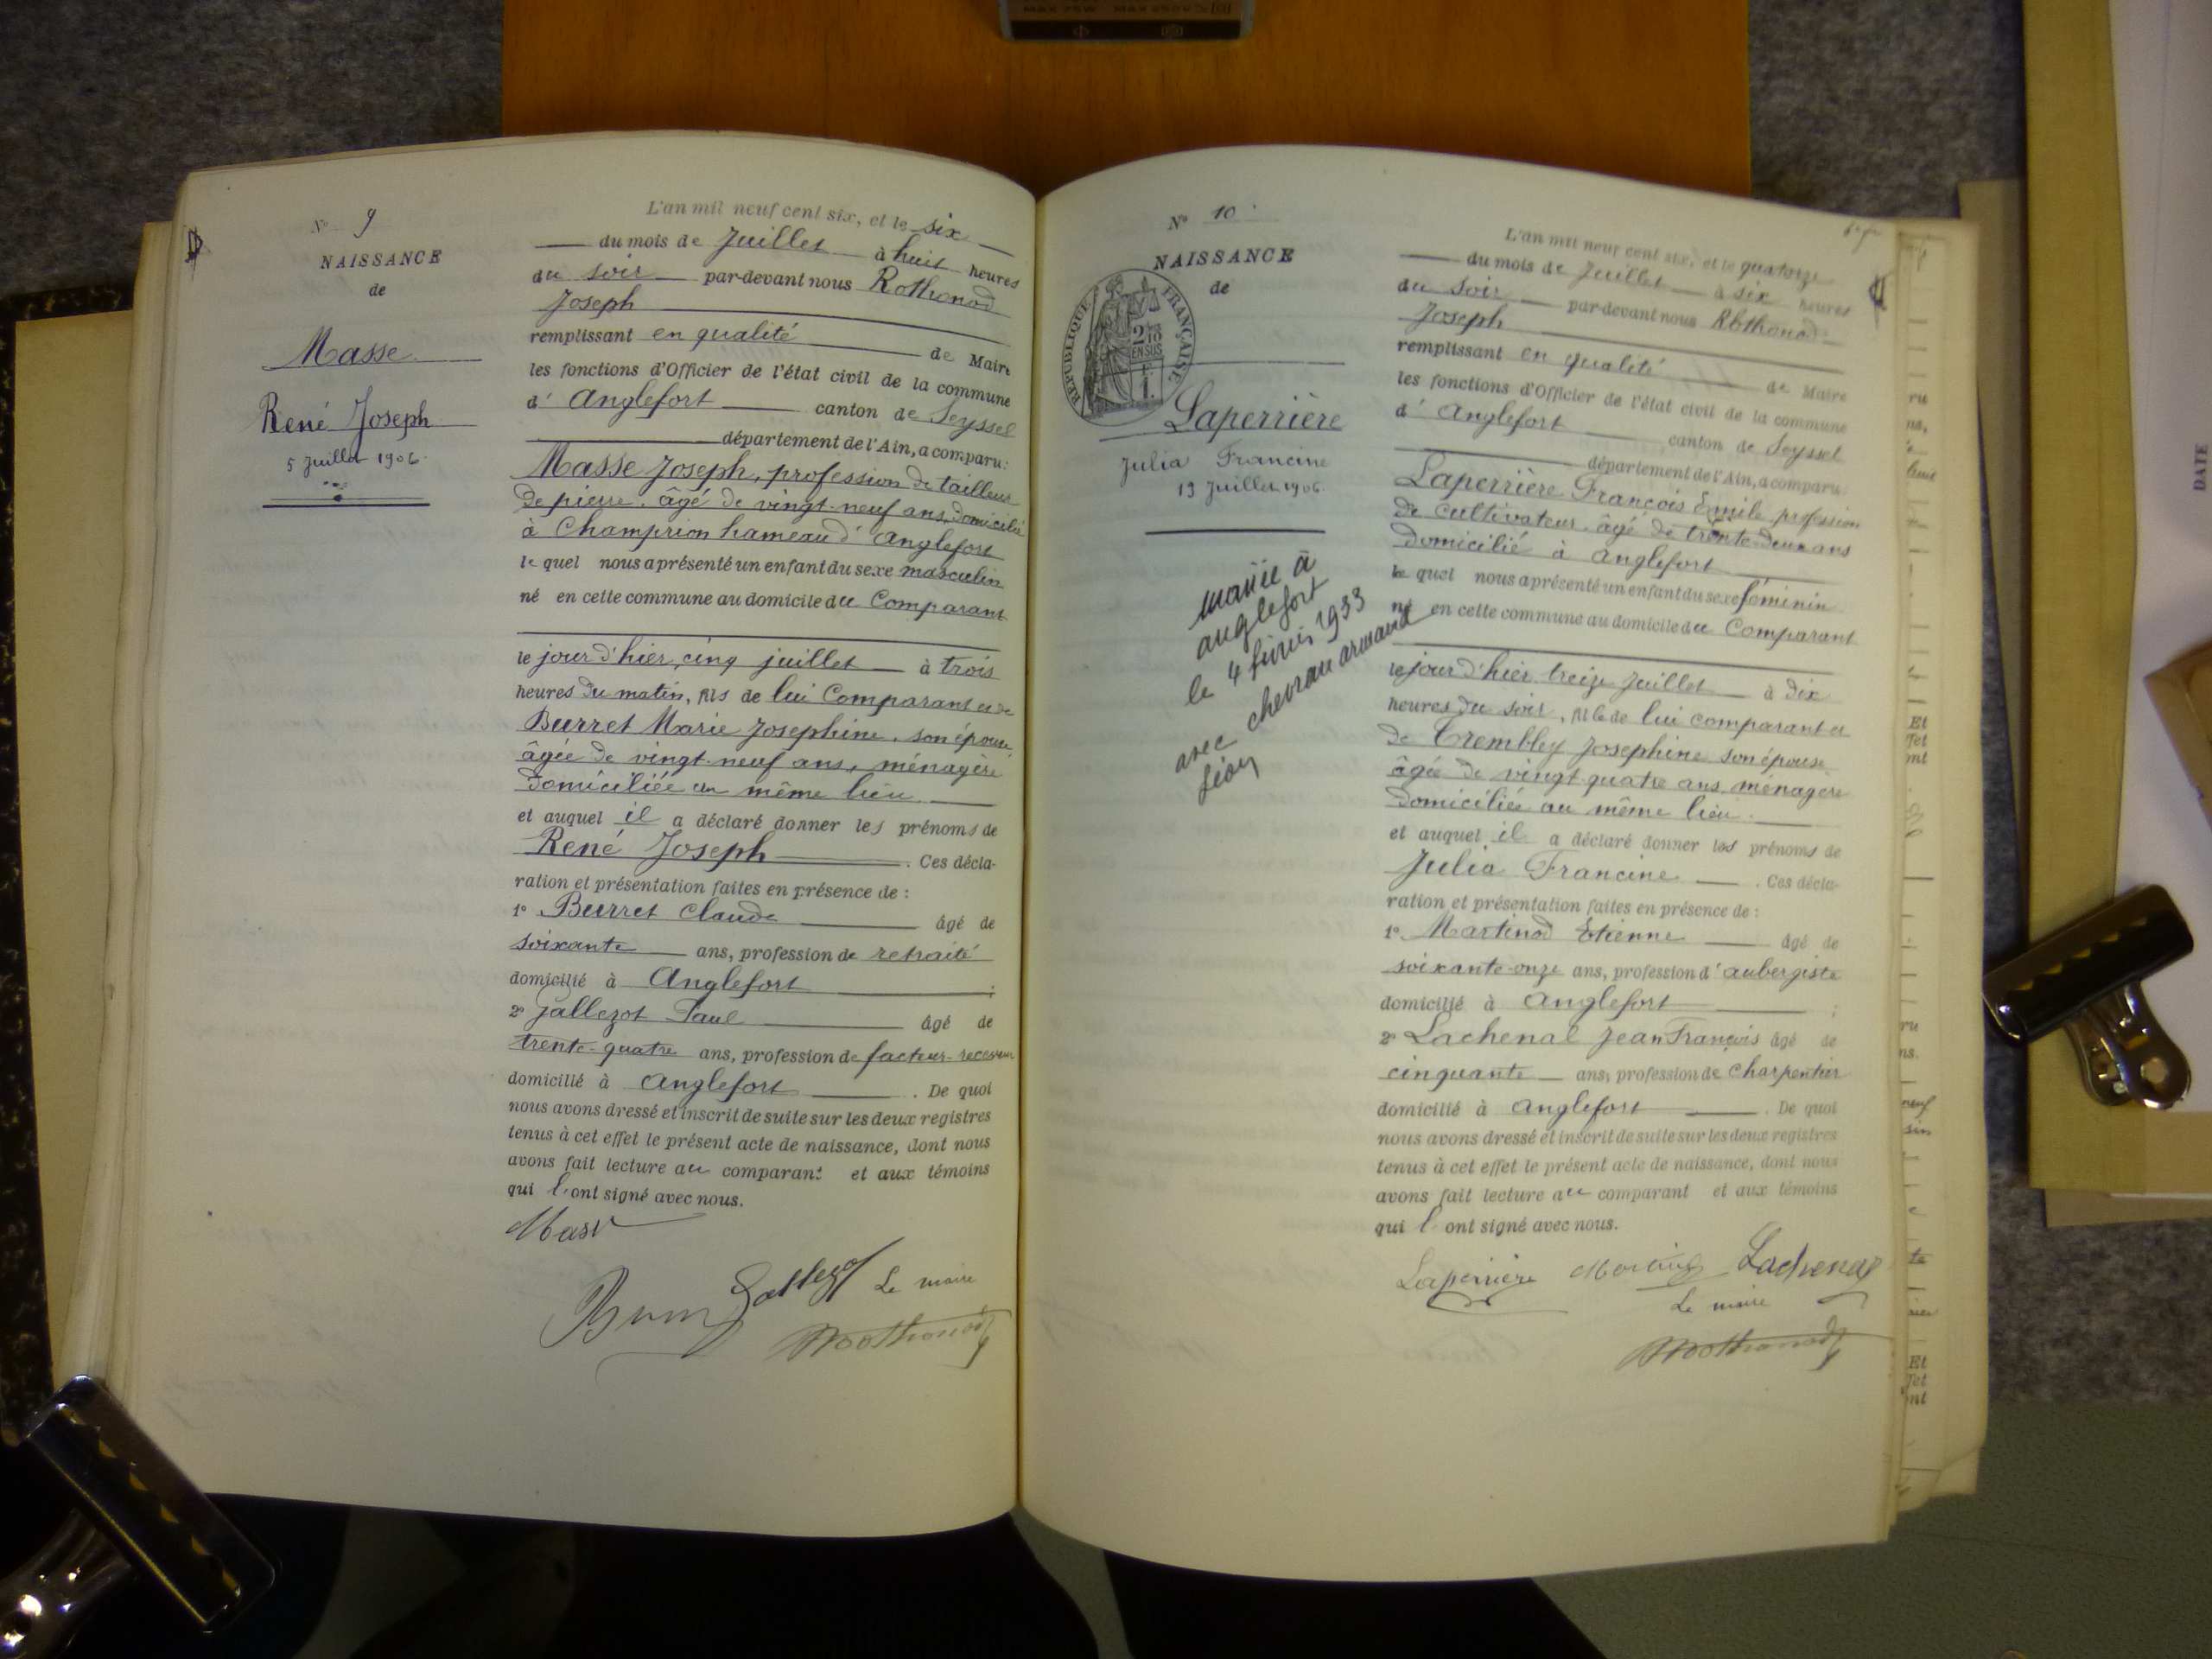 N° 9
NAISSANCE
de
Masse
René Joseph
5 Juillet 1906.
L'an mil neuf cent six, et le six
du mois de Juillet à huit heures
du soir par-devant nous Rothonod
Joseph
remplissant en qualité de Maire
les fonctions d'Officier de l'état civil de la commune
d' Anglefort canton de Seyssel
département de l'Ain, a comparu:
Masse Joseph, profession de tailleur
de pierre, âgé de vingt-neuf ans, domicilié
à Champrion hameau d' Anglefort
le quel nous a présenté un enfant du sexe masculin
né en cette commune au domicile du Comparant
le jour d'hier, cinq juillet à trois
heures du matin, fils de lui Comparant et de
Burret Marie Josephine, son épouse
âgée de vingt-neuf ans, ménagère
domiciliée au même lieu
et auquel il a déclaré donner les prénoms de
René Joseph . Ces décla-
ration et présentation faites en présence de :
1° Burret Claude âgé de
soixante ans, profession de retraité
domicilié à Anglefort ;
2° Gallezot Paul âgé de
trente-quatre ans, profession de facteur-receveur
domicilié à Anglefort . De quoi
nous avons dressé et inscrit de suite sur les deux registres
tenus à cet effet le présent acte de naissance, dont nous
avons fait lecture au comparant et aux témoins
qui l'ont signé avec nous.
Masse
Gallezot Le maire
Rothonod
N° 10
NAISSANCE
de
RÉPUBLIQUE FRANÇAISE
2/10
EN SUS
Laperrière
Julia Francine
13 Juillet 1906.
mariée à
anglefort
le 4 février 1933
avec chevrau armand
léon
L'an mil neuf cent six, et le quatorze
du mois de Juillet à six heures
du soir par-devant nous Rothonod
Joseph
remplissant en qualité de Maire
les fonctions d'Officier de l'état civil de la commune
d' Anglefort canton de Seyssel
département de l'Ain, a comparu
Laperrière François Emile profession
de cultivateur, âgé de trente-deux ans
domicilié à Anglefort
le quel nous a présenté un enfant du sexe féminin
né en cette commune au domicile du Comparant
le jour d'hier treize Juillet à dix
heures du soir, fille de lui comparant et
de Trembley Josephine son épouse
âgée de vingt-quatre ans, ménagère
domiciliée au même lieu.
et auquel il a déclaré donner les prénoms de
Julia Francine . Ces décla-
ration et présentation faites en présence de :
1° Martinod Etienne âgé de
soixante-onze ans, profession d'aubergiste
domicilié à Anglefort ;
2° Lachenal Jean François âgé de
cinquante ans, profession de Charpentier
domicilié à Anglefort . De quoi
nous avons dressé et inscrit de suite sur les deux registres
tenus à cet effet le présent acte de naissance, dont nous
avons fait lecture au comparant et aux témoins
qui l'ont signé avec nous.
Laperrière Martinod Lachenal
Le maire
Rothonod
DATE